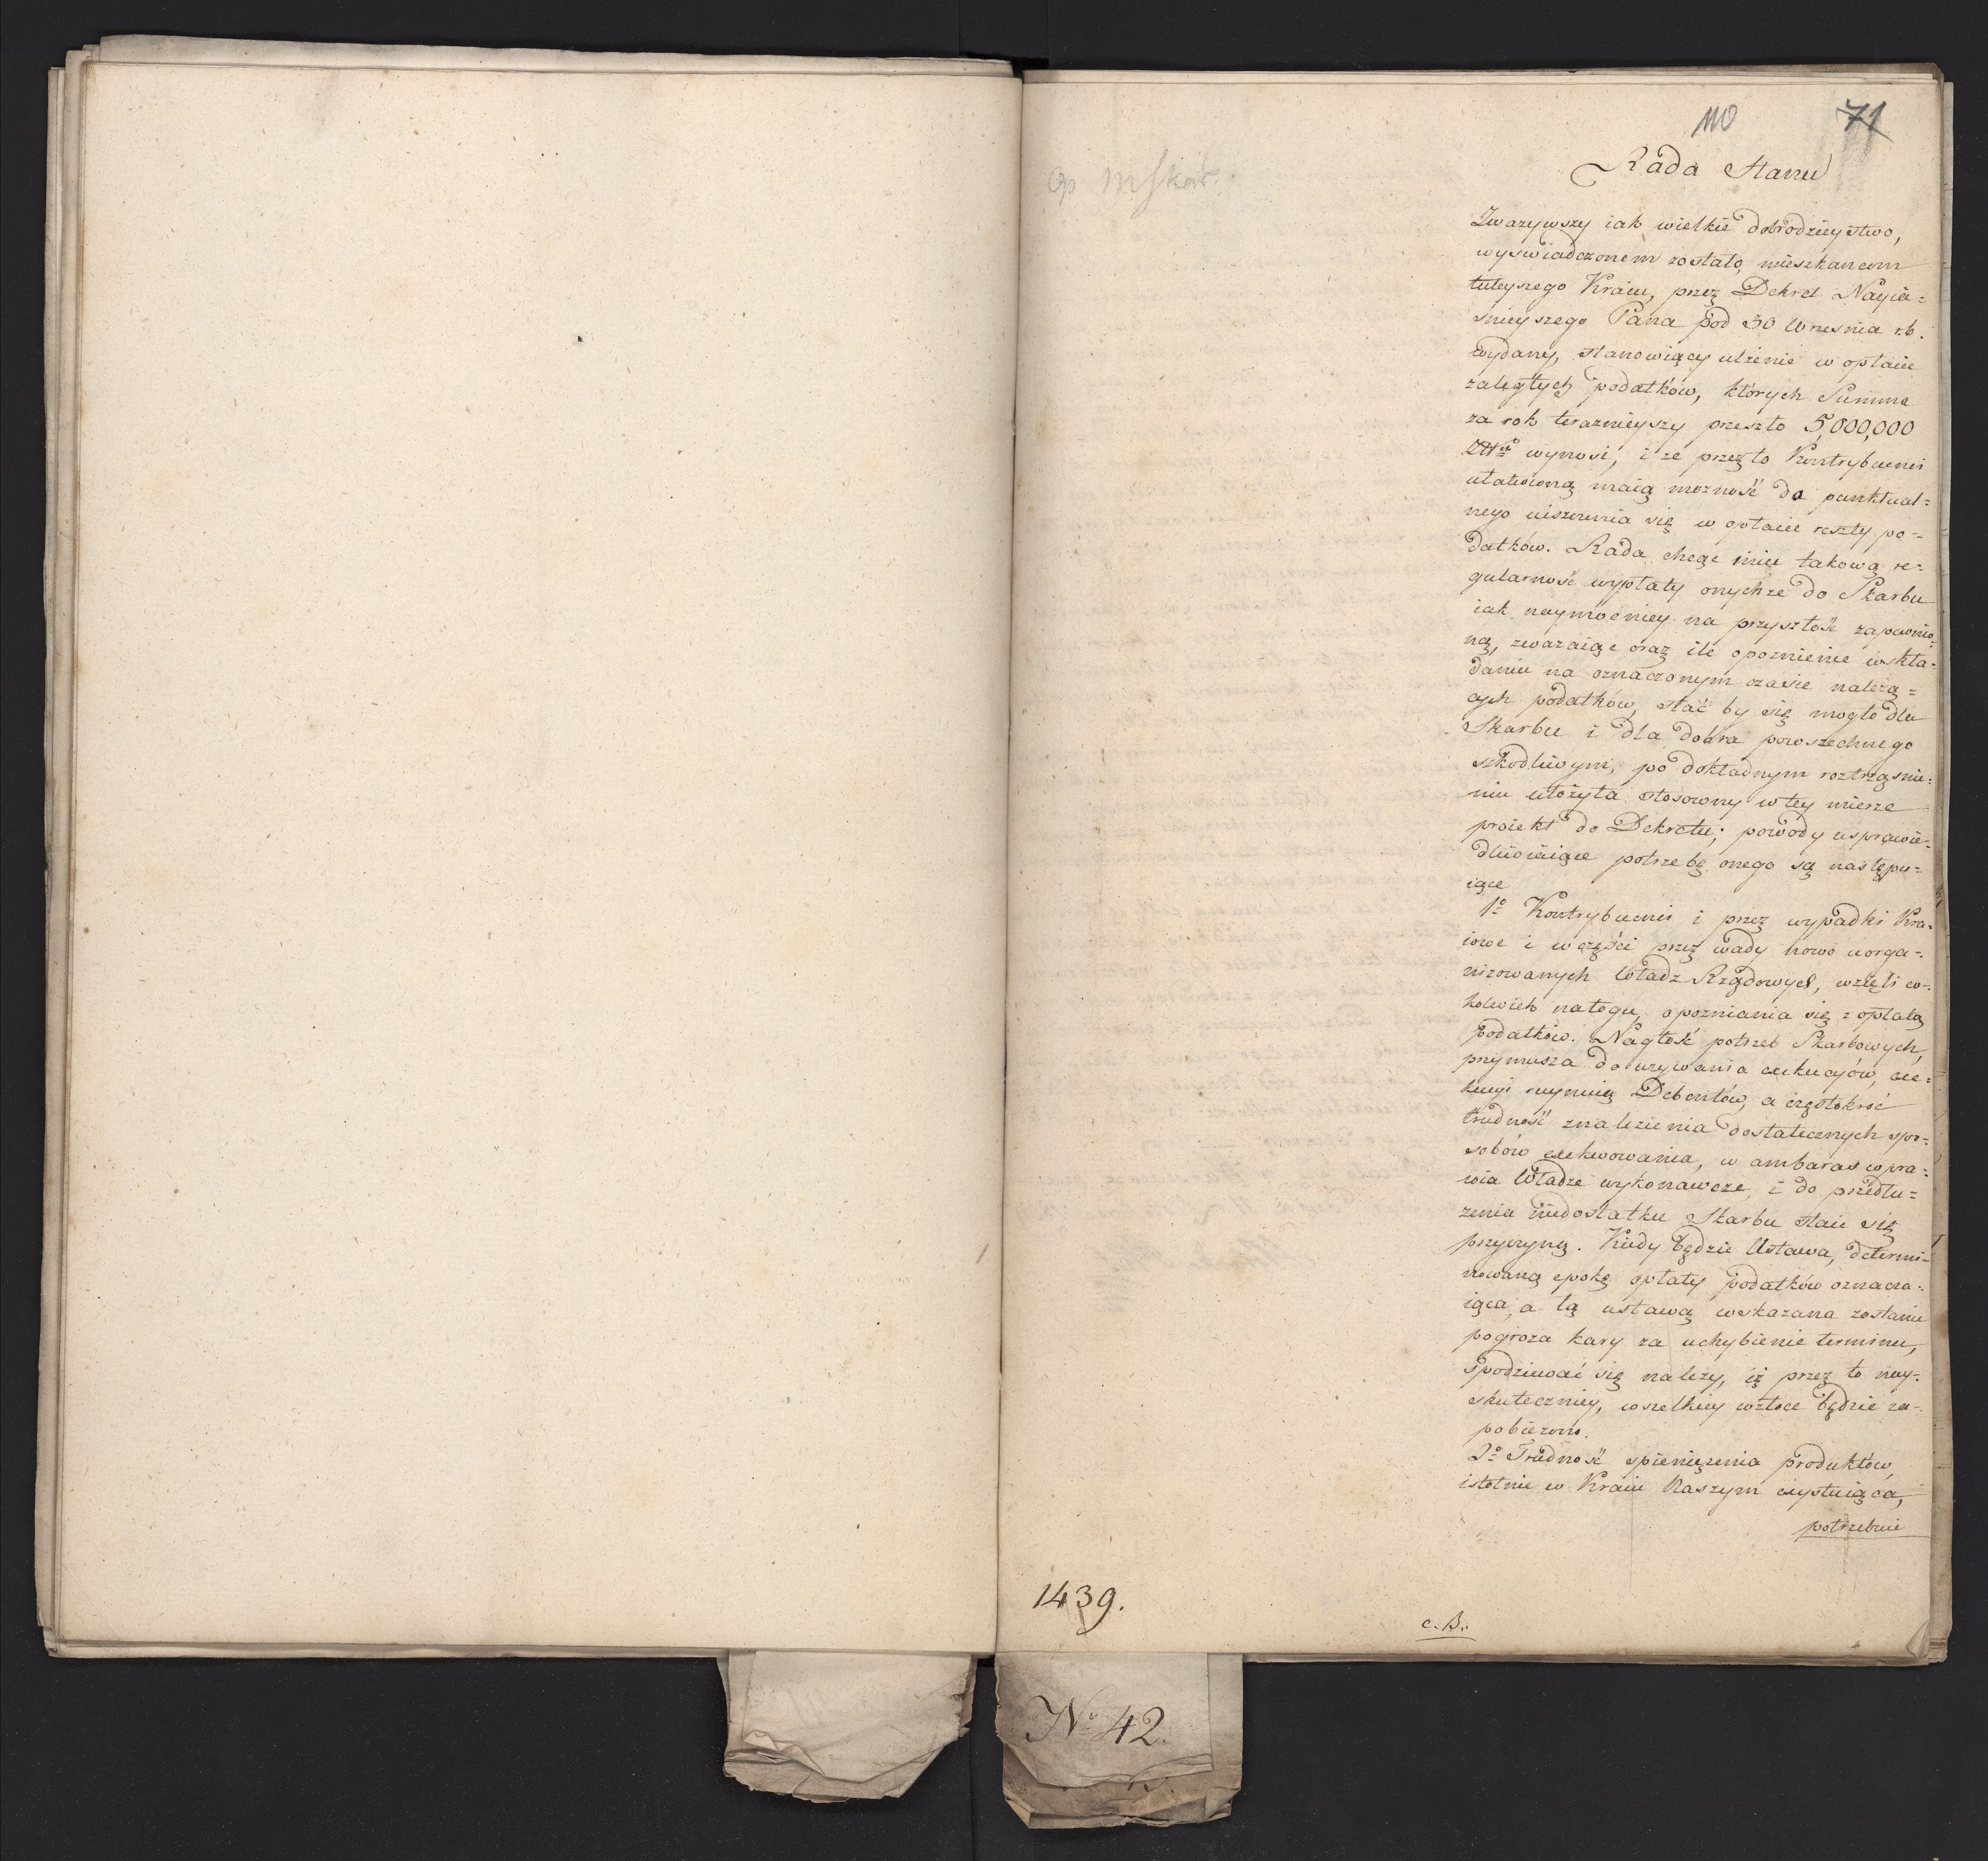 110
71
Rada Stanu
Zwazywszy iak wielkie dobrodzieystwo,
wyswiadczonem zostało, mieszkancom
tuteyszego Kraiu, przez Dekret Nayia=
snieyszego Pana pod 30 Wrzesnia r.b.
wydany, stanowiący ulzenie w opłacie
zaległych podatków, których Summa
za rok teraznieyszy przeszło 5,000,000
wynosi, i ze przez to Kontrybuenci
ułatwioną maią moznosć do punktual=
nego uiszczenia się w opłacie reszty po=
datków. Rada chcąc mieć takową re=
gularnosć wypłaty onychze do Skarbu
iak naymocniey na przyszłosć zapewnio=
ną, zwazaiąc oraz ile opoznienie w skła=
daniu na oznaczonym czasie nalezą=
cych podatków, stać by się mogło dla
Skarbu i dla dobra powszechnego
szkodliwym, po dokładnym roztrząsnie=
niu ułozyła stosowny w tey mierze
proiekt do Dekretu; powody usprawie=
dliwiaiące potrzebę onego są następu=
iące
1º Kontrybuenci i przez wypadki Kra=
iowe i w częsci przez wady nowo uorga=
nizowanych Władz Rządowych, wzięli co=
kolwiek nałogu, opozniania się z opłatą
podatków. Nagłosć potrzeb Skarbowych,
przymusza do uzywania exekucyów, exe=
kucyi ruynuią Debentów, a częstokroć
trudnosć znalezienia dostatecznych spo=
sobów exekwowania, w ambaras wpra=
wia Władze wykonawcze, i do przedłu=
zenia niedostatku Skarbu staie się
przyczyną. Kiedy będzie Ustawa, determi=
nowaną epokę opłaty podatków oznacza=
iąca, a tą ustawą wskazana zostanie
pogroza kary za uchybienie terminu,
spodziewać się nalezy, iz przez to nay=
skuteczniey, wszelkiey zwłoce będzie za=
pobiezono.
2º Trudnosć spienięzenia produktów,
istotnie w Kraiu Naszym exystuiąca,
potrzebuie
1439.
c.B.
Nº 42.